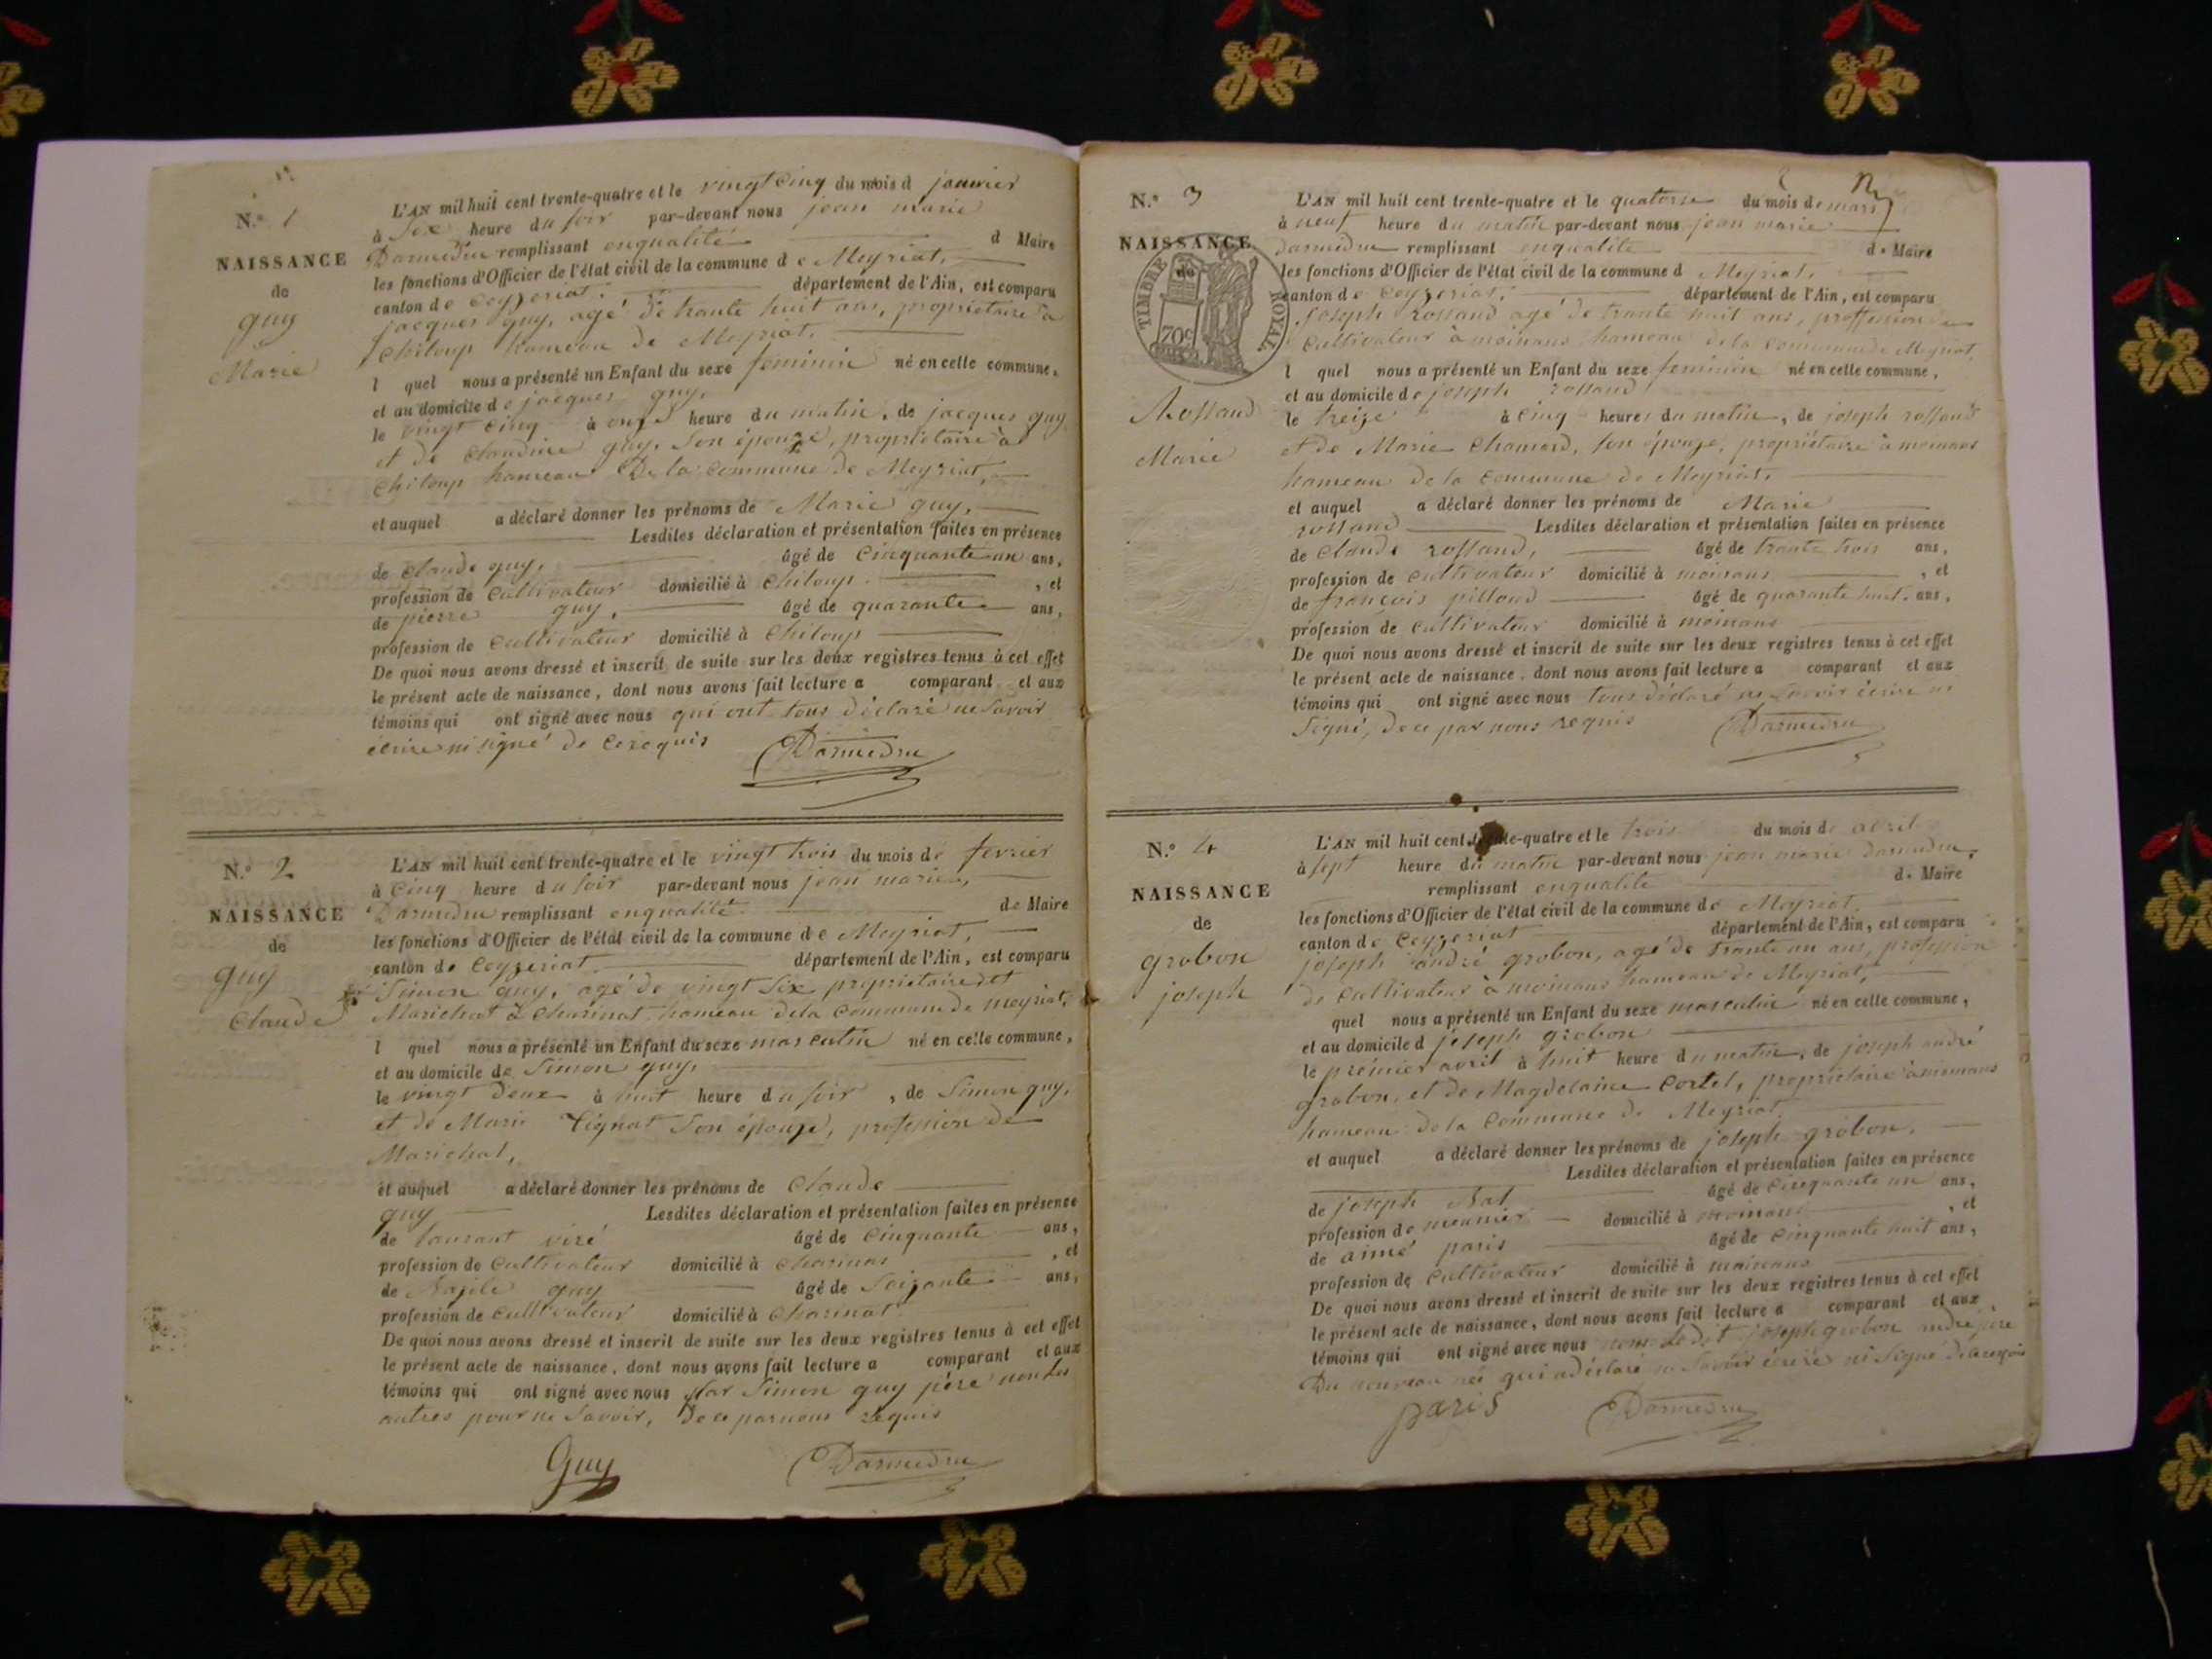 N.º 1
NAISSANCE
de
guy
Marie
L'AN mil huit cent trente-quatre et le vingt cinq du mois d janvier
à Six heure du soir par-devant nous jean marie
Darmedru remplissant enqualité d Maire
les fonctions d'Officier de l'état civil de la commune de Meyriat,
canton de Ceyzeriat. département de l'Ain, est comparu
jacques guy, agé de trante huit ans, propriétaire à
Chiloup hameau de Meyriat.
l quel nous a présenté un Enfant du sexe feminin né en celle commune,
et au domicile de jacques guy,
le vingt cinq à onze heure du matin, de jacques guy
et de Claudine guy, son épouze, propriétaire à
Chiloup hameau De la Commune de Meyriat,
et auquel a déclaré donner les prénoms de Marie guy,
Lesdites déclaration et présentation faites en présence
de Claude guy, âgé de Cinquante un ans,
profession de Cultivateur domicilié à Chiloup , et
de pierre guy, âgé de quarante ans,
profession de Cultivateur domicilié à Chiloup
De quoi nous avons dressé et inscrit de suite sur les deux registres tenus à cet effet
le présent acte de naissance, dont nous avons fait lecture a comparant et aux
témoins qui ont signé avec nous qui ont tous déclaré ne Savoir
écrire ni signé de ce requis
Darmedru
N.º 2
NAISSANCE
de
guy
Claude
L'AN mil huit cent trente-quatre et le vingt trois du mois de fevrier
à Cinq heure du soir par-devant nous jean marie,
Darmedru remplissant enqualité de Maire
les fonctions d'Officier de l'état civil de la commune de Meyriat,
canton de Ceyzeriat département de l'Ain, est comparu
Simon guy, agé de vingt Six propriétaire et
Marichat à Charinat hameau dela Commune de meyriat,
l quel nous a présenté un Enfant du sexe masculin né en celle commune,
et au domicile de Simon guy,
le vingt Deux à huit heure du soir , de Simon guy,
et de Marie Son épouze, profession de
Marichat,
et auquel a déclaré donner les prénoms de Claude
guy Lesdites déclaration et présentation faites en présence
de laurant viré âgé de Cinquante ans,
profession de Cultivateur domicilié à , et
de guy âgé de Soizante ans,
profession de Cultivateur domicilié à Charinat
De quoi nous avons dressé et inscrit de suite sur les deux registres tenus à cet effet
le présent acte de naissance, dont nous avons fait lecture a comparant et aux
témoins qui ont signé avec nous par Simon guy père non les
autres pour ne Savoir, de ce par nous requis
Guy Darmedru
N.º 3
NAISSANCE
de
TIMBRE ROYAL
70c
Rossand
Marie
L'AN mil huit cent trente-quatre et le quatorse du mois de mars
à neuf heure du matin par-devant nous jean marie
Darmedru remplissant enqualité de Maire
les fonctions d'Officier de l'état civil de la commune d Meyriat,
canton de Ceyzeriat. département de l'Ain, est comparu
Joseph rossand agé de trante huit ans, proffession de
Cultivateur à moinans hameau dela Commune de Meyriat,
l quel nous a présenté un Enfant du sexe feminin né en celle commune,
et au domicile de joseph rossand
le treize à Cinq heures du matin, de joseph rossand
et de Marie Chanard, son épouze, propriétaire à moinans
hameau de la Commune de Meyriat,
et auquel a déclaré donner les prénoms de Marie
rossand Lesdites déclaration et présentation faites en présence
de Claude rossand, âgé de trante trois ans,
profession de Cultivateur domicilié à moinans , et
de françois pilloud âgé de quarante huit ans,
profession de Cultivateur domicilié à moinans
De quoi nous avons dressé et inscrit de suite sur les deux registres tenus à cet effet
le présent acte de naissance, dont nous avons fait lecture a comparant et aux
témoins qui ont signé avec nous tous déclaré ne Savoir écrire ni
Signé, de ce par nous requis
Darmedru
N.º 4
NAISSANCE
de
grobon
joseph
L'AN mil huit cent trente-quatre et le trois du mois d avril
à sept heure du matin par-devant nous jean marie darmedru,
remplissant enqualité de Maire
les fonctions d'Officier de l'état civil de la commune de Meyriat
canton de Ceyzeriat département de l'Ain, est comparu
joseph andré grobon, agé de trante un ans, profession
de Cultivateur à moinans hameau de Meyriat,
quel nous a présenté un Enfant du sexe masculin né en celle commune,
et au domicile d joseph grobon
le prémier avril à huit heure du matin, de joseph andré
grobon, et de Magdelaine Cortel, propriétaire à moinans
hameau de la Commune de Meyriat
et auquel a déclaré donner les prénoms de joseph grobon.
Lesdites déclaration et présentation faites en présence
de joseph âgé de Cinquante un ans,
profession de meunier domicilié à moinans , et
de aimé paris âgé de Cinquante huit ans,
profession de Cultivateur domicilié à moinans
De quoi nous avons dressé et inscrit de suite sur les deux registres tenus à cet effet
le présent acte de naissance, dont nous avons fait lecture a comparant et aux
témoins qui ont signé avec nous non ledit joseph grobon andré père
Du nouveau né qui a déclaré ne Savoir écrire ni Signé de ce requis
paris Darmedru